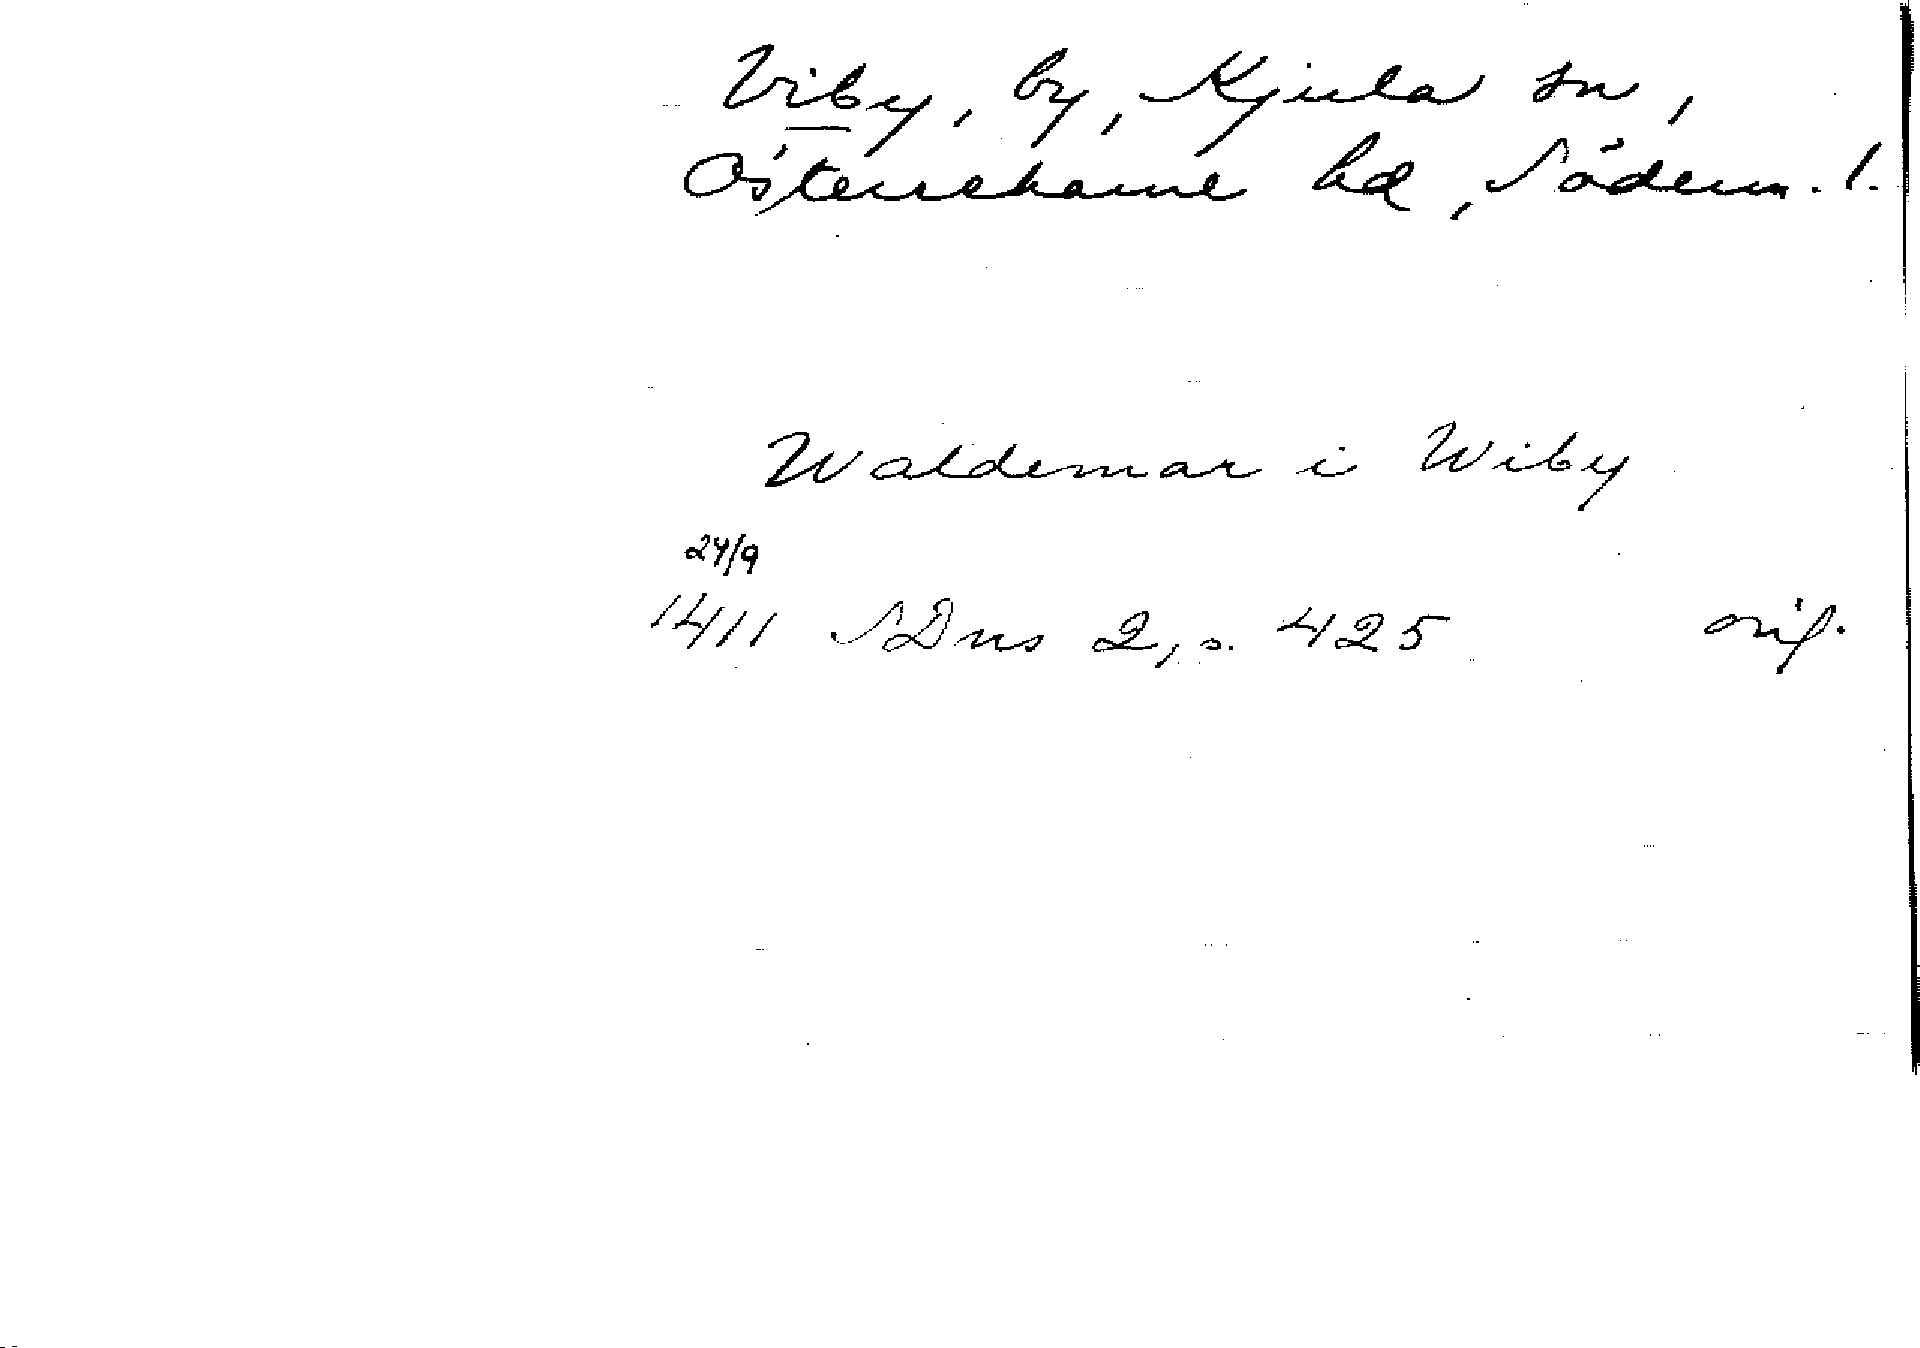 Viby, by, Kjula sn,
Österrekarne hd, Söderm. l.
Waldemar i Wiby
24/9
1411 SDns 2, s. 425 orig.